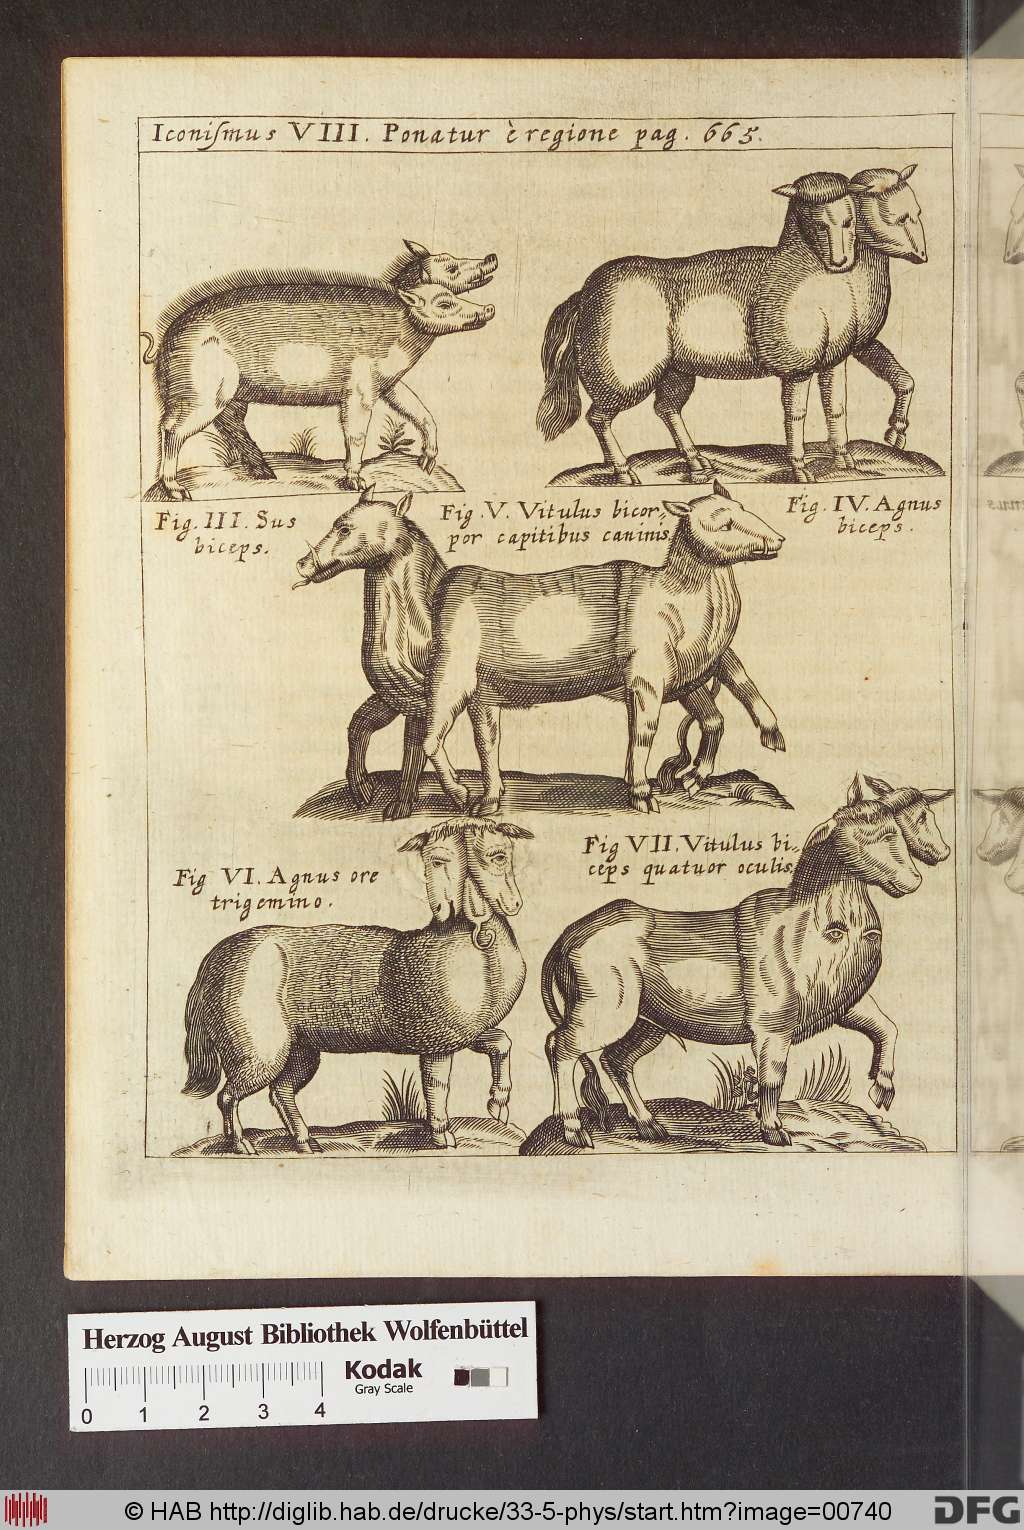 Iconiſmus VIII. Ponatur è regione pag. 665.
Fig. III. Sus
biceps.
Fig. V. Vitulus bicor⸗
por capitibus caninis
Fig. IV. Agnus
biceps.
Fig VI. Agnus ore
trigemino.
Fig VII. Vitulus bi⸗
ceps quatuor oculis.
Herzog August Bibliothek Wolfenbüttel
Kodak
Gray Scale
0 1 2 3 4
© HAB http://diglib.hab.de/drucke/33-5-phys/start.htm?image=00740
DFG